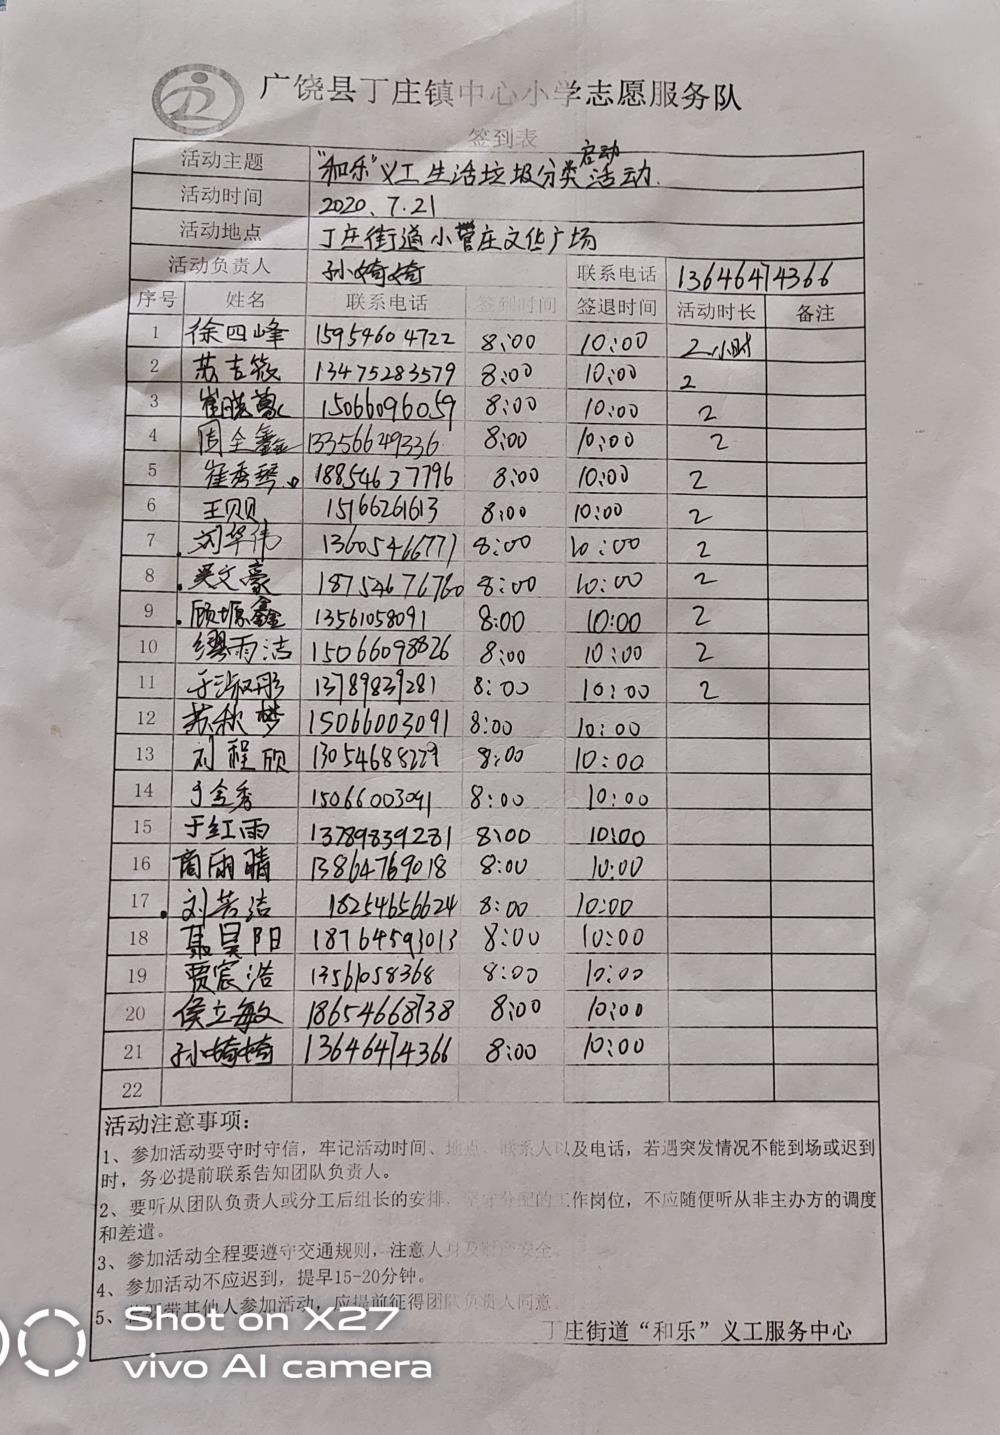 广饶县丁庄镇中心小学志愿服务队
签到表
活动主题 "和乐"义工生活垃圾分类启动活动.
活动时间 2020.7.21
活动地点 丁庄街道小营庄文化广场
活动负责人 孙婍婍 联系电话 13646474366
序号 姓名 联系电话 签到时间 签退时间 活动时长 备注
1 徐四峰 15954604722 8:00 10:00 2小时
2 苏吉筱 13475283579 8:00 10:00 2
3 崔晓 15066096059 8:00 10:00 2
4 周全鑫 13356649336 8:00 10:00 2
5 崔秀琴 18854637796 8:00 10:00 2
6 王贝贝 15166261613 8:00 10:00 2
7 刘华伟 13605466771 8:00 10:00 2
8 吴文豪 18754676760 8:00 10:00 2
9 顾塬鑫 13561058091 8:00 10:00 2
10 缪雨洁 15066098826 8:00 10:00 2
11 于淑彤 13789839281 8:00 10:00 2
12 苏秋梦 15066003091 8:00 10:00
13 刘程欣 13054688229 8:00 10:00
14 于金秀 15066003091 8:00 10:00
15 于红雨 13789839281 8:00 10:00
16 商雨晴 13864769018 8:00 10:00
17 刘芳洁 18254656624 8:00 10:00
18 聂昊阳 18764593013 8:00 10:00
19 贾宸浩 13561058368 8:00 10:00
20 侯立敏 18654668738 8:00 10:00
21 孙婍婍 13646474366 8:00 10:00
22
活动注意事项:
1、参加活动要守时守信，牢记活动时间、地点、联系人以及电话，若遇突发情况不能到场或迟到
时，务必提前联系告知团队负责人。
2、要听从团队负责人或分工后组长的安排，坚守分配的工作岗位，不应随便听从非主办方的调度
和差遣。
3、参加活动全程要遵守交通规则，注意人身及财产安全。
4、参加活动不应迟到，提早15-20分钟。
5、带其他人参加活动，应提前征得团队负责人同意。
丁庄街道“和乐”义工服务中心
Shot on X27
vivo AI camera